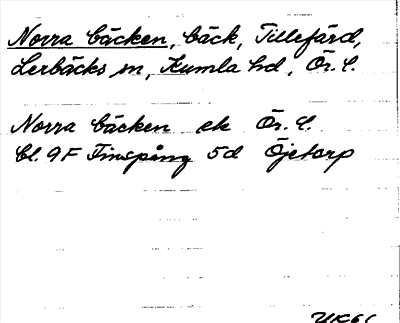 Norra bäcken, bäck, Tillefärd,
Lerbäcks sn, Kumla hd, Ör. l.
Norra bäcken ek Ör. l.
bl. 9F Finspång 5d Öjetorp